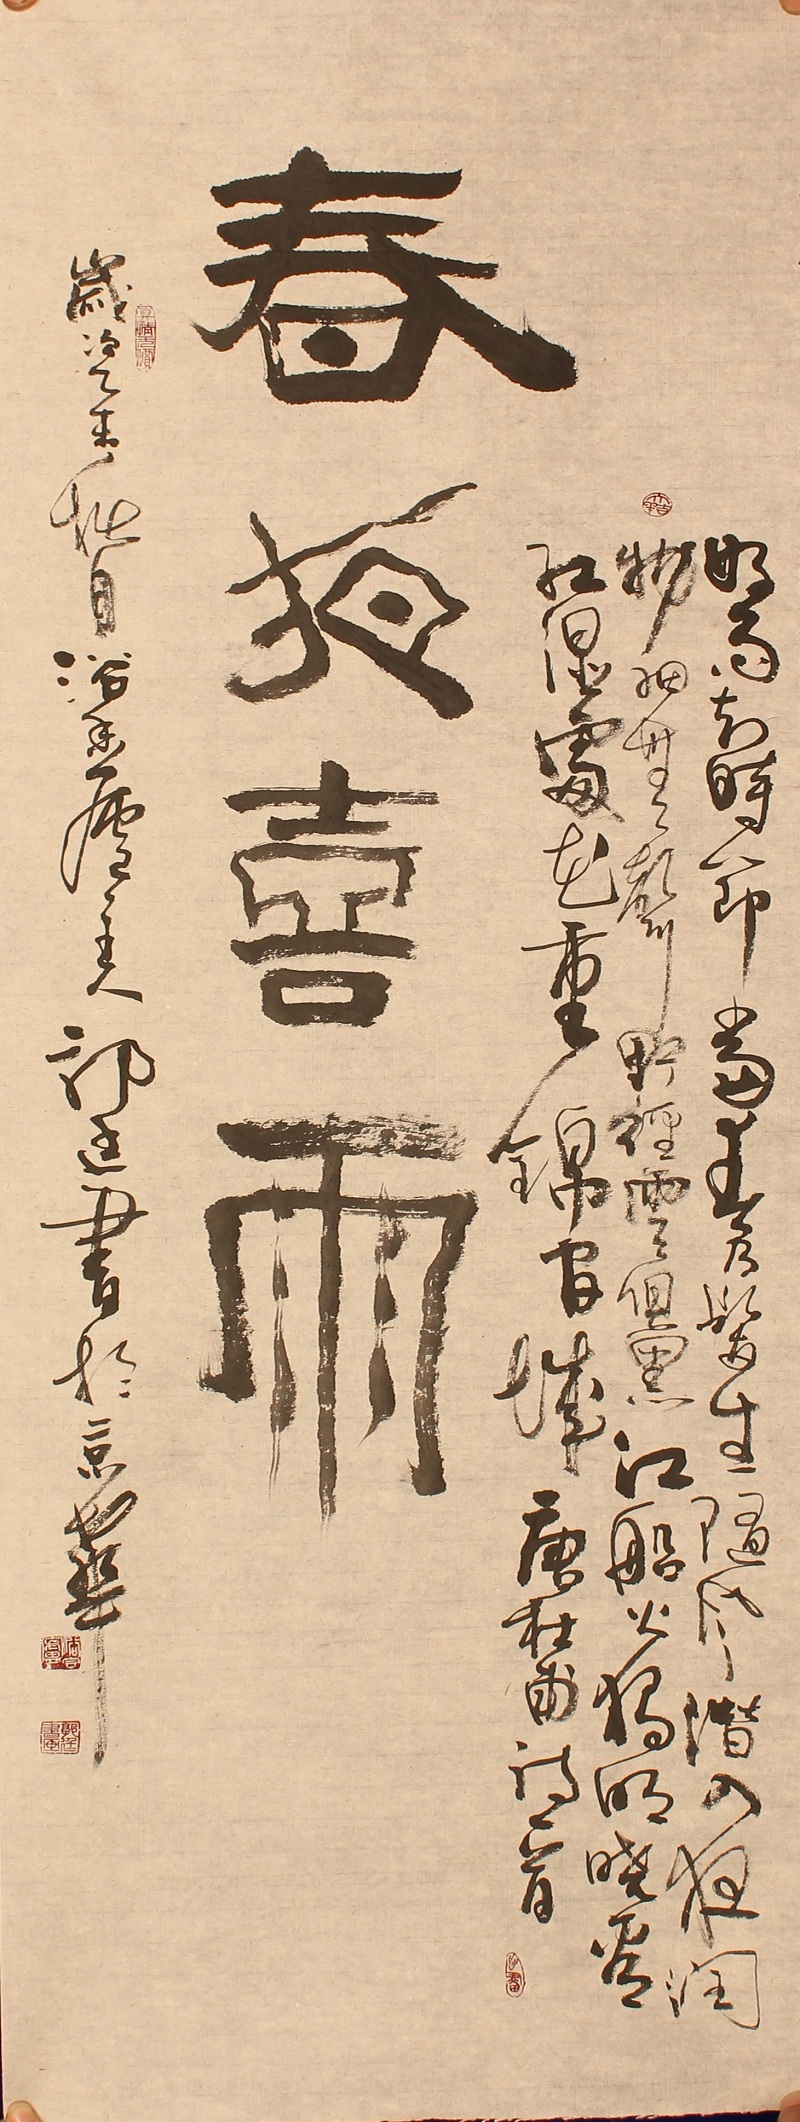 好雨知時節當春乃發生隨風潛入夜潤
物細無聲野徑雲俱黑江船火獨明曉看
紅濕處花重錦官城唐杜甫詩一首
春夜喜雨
歲次乙未秋月廬主人郭廷書於京華